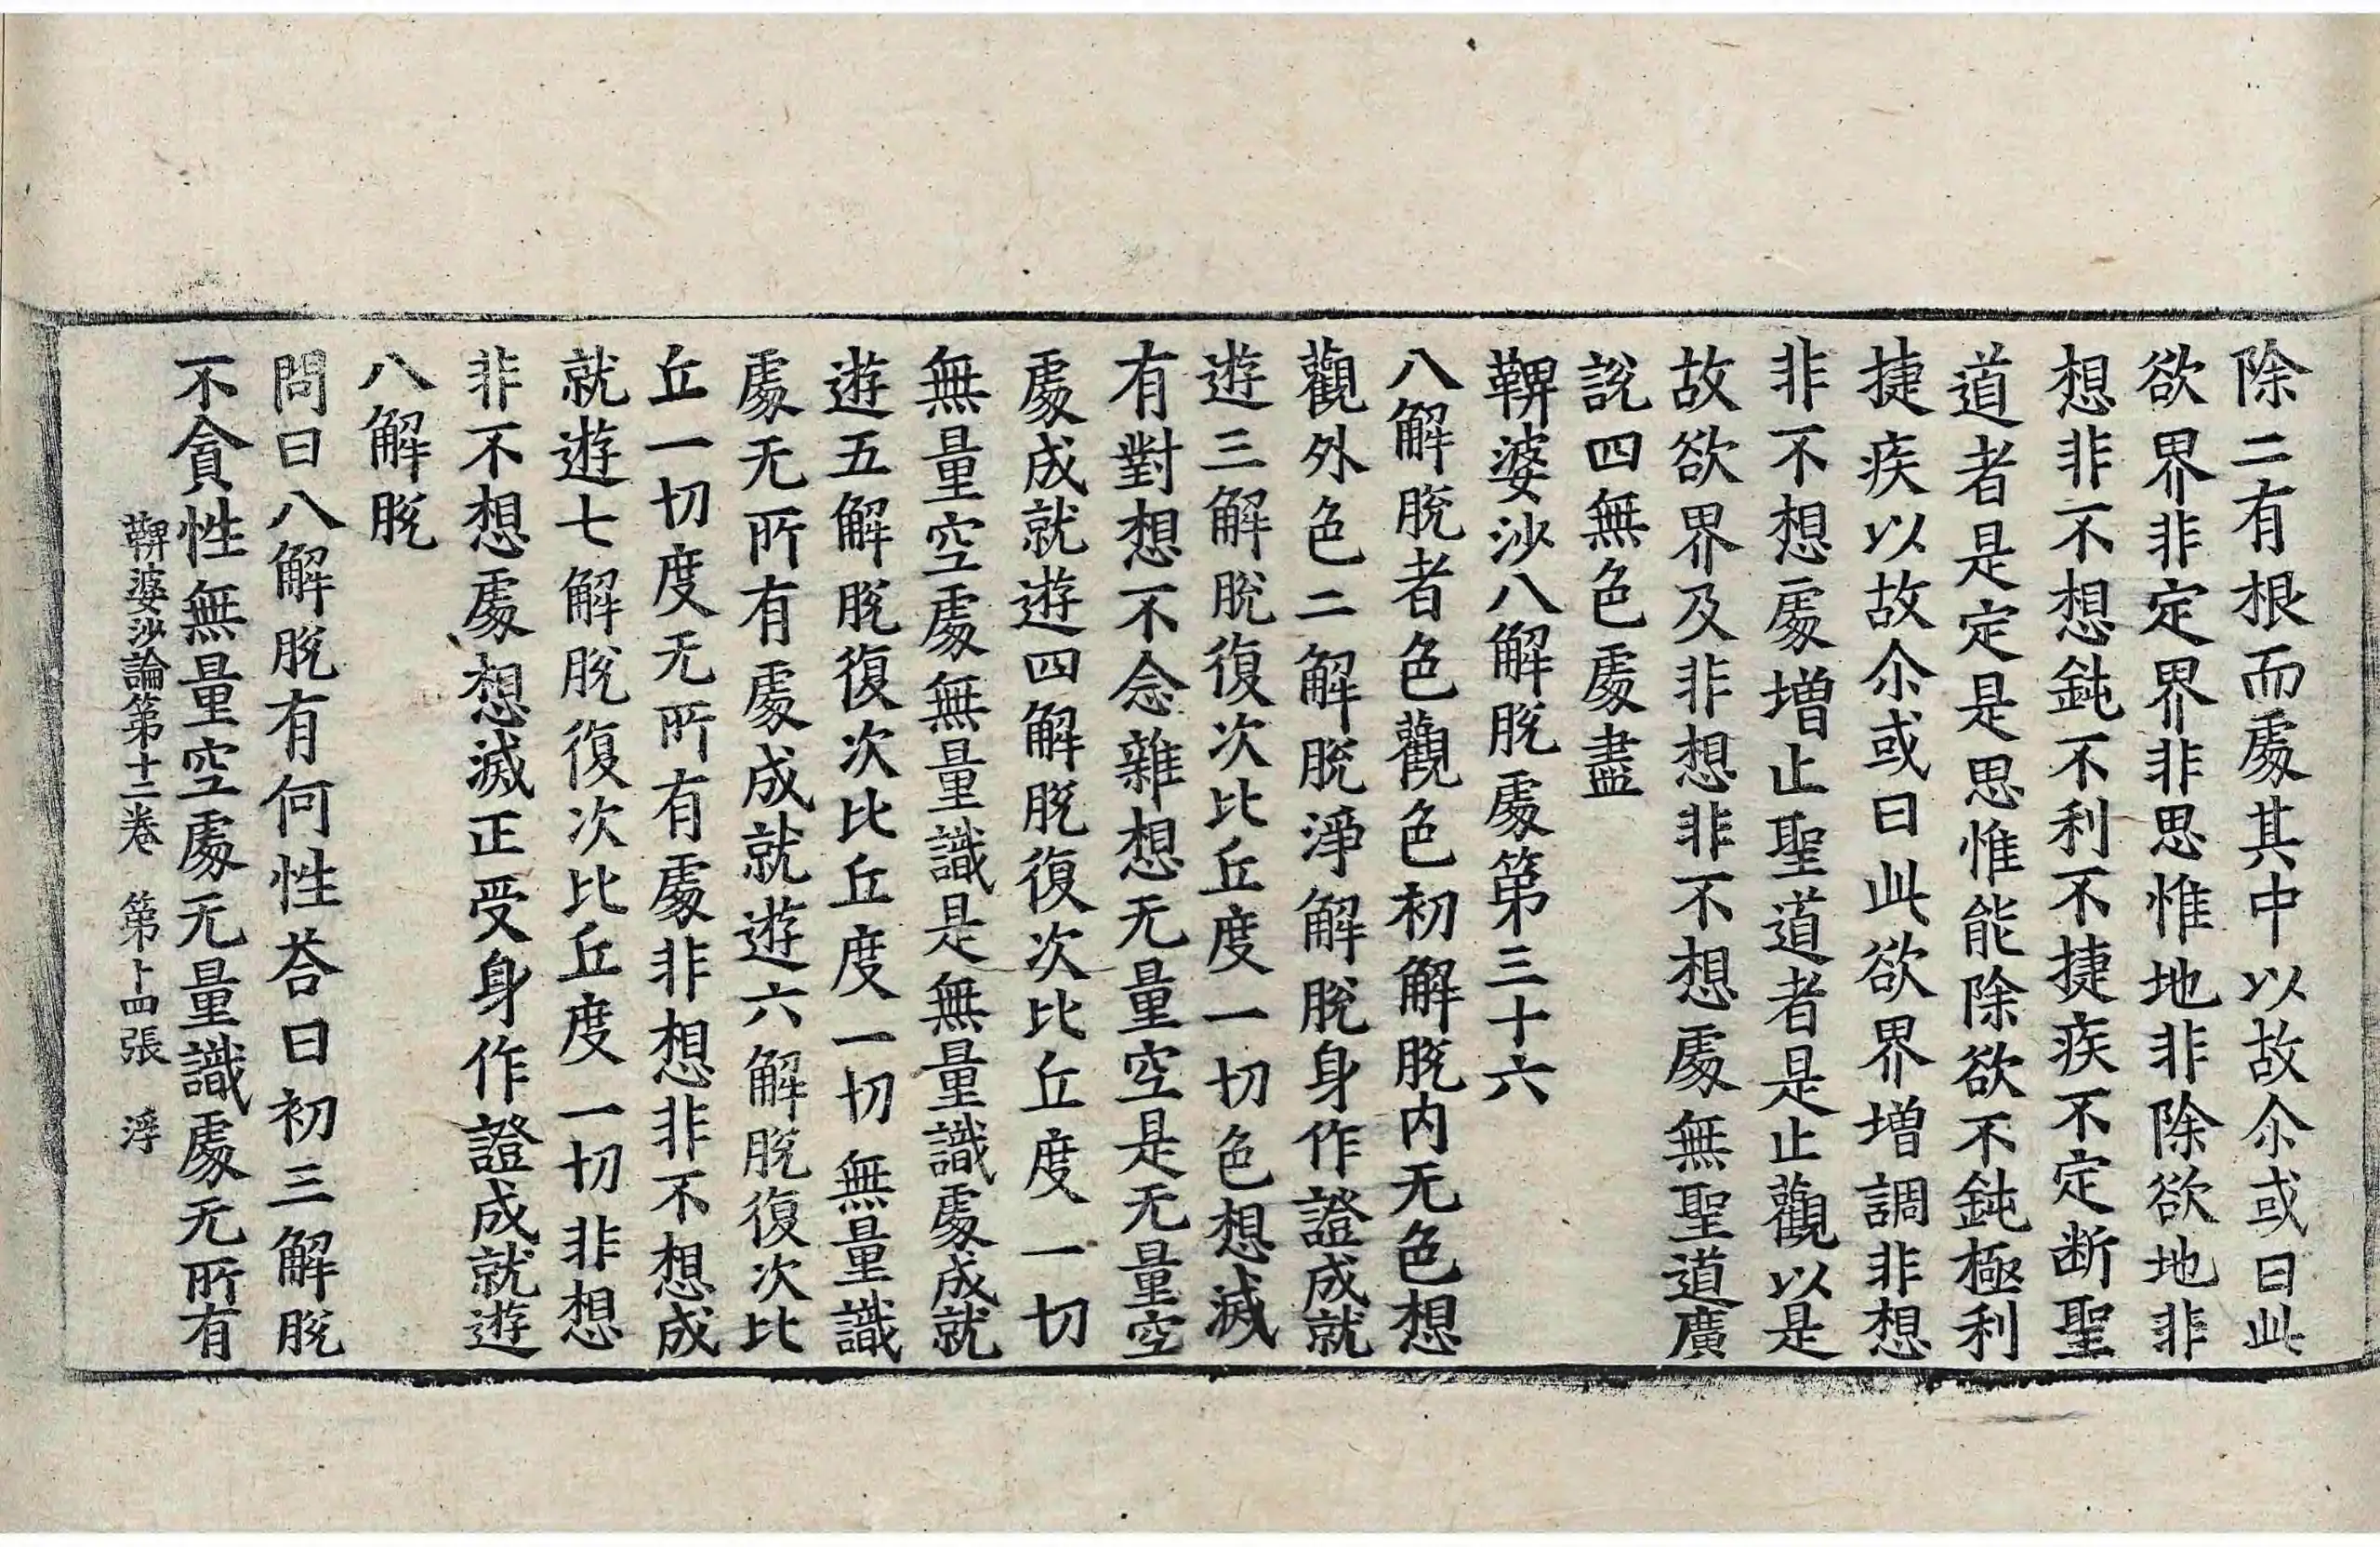 除二有根而處其中以故尒或曰此
欲界非定界非思惟地非除欲地非
想非不想鈍不利不捷疾不定断聖
道者是定是思惟能除欲不鈍極利
捷疾以故尒或曰此欲界增調非想
非不想處增止聖道者是止觀以是
故欲界及非想非不想處無聖道廣
說四無色處盡
鞞婆沙八解脫處第三十六
八解脫者色觀色初解脫内无色想
觀外色二解脫淨解脫身作證成就
遊三解脫復次比丘度一切色想滅
有對想不念雜想无量空是无量空
處成就遊四解脫復次比丘度一切
無量空處無量識是無量識處成就
遊五解脫復次比丘度一切無量識
處无所有處成就遊六解脫復次比
丘一切度无所有處非想非不想成
就遊七解脫復次比丘度一切非想
非不想處想滅正受身作證成就遊
八解脫
問曰八解脫有何性荅曰初三解脫
不貪性無量空處无量識處无所有
鞞婆沙論第十二卷 第十四張 浮